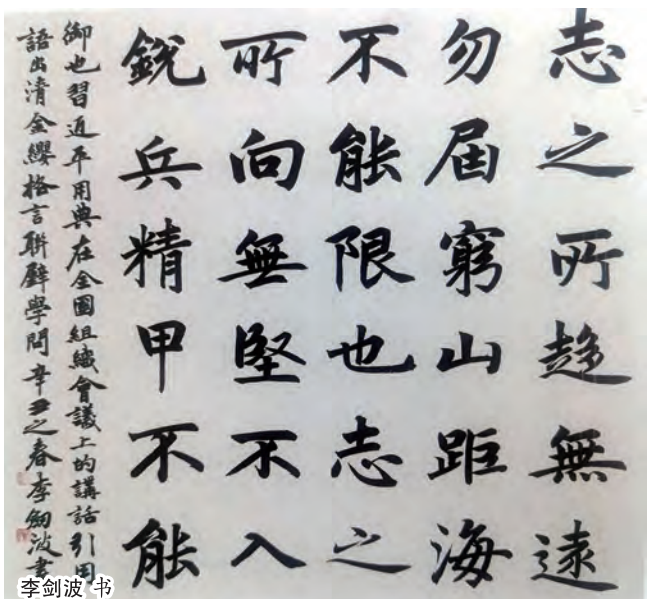 志之所趍無遠
勿届窮山距海
不能限也志之
所向無堅不入
銳兵精甲不能
御也習近平用典在全國組織會議上的講話引用
語出清金纓格言聯璧學問辛丑之春李劍波書
李剑波 书